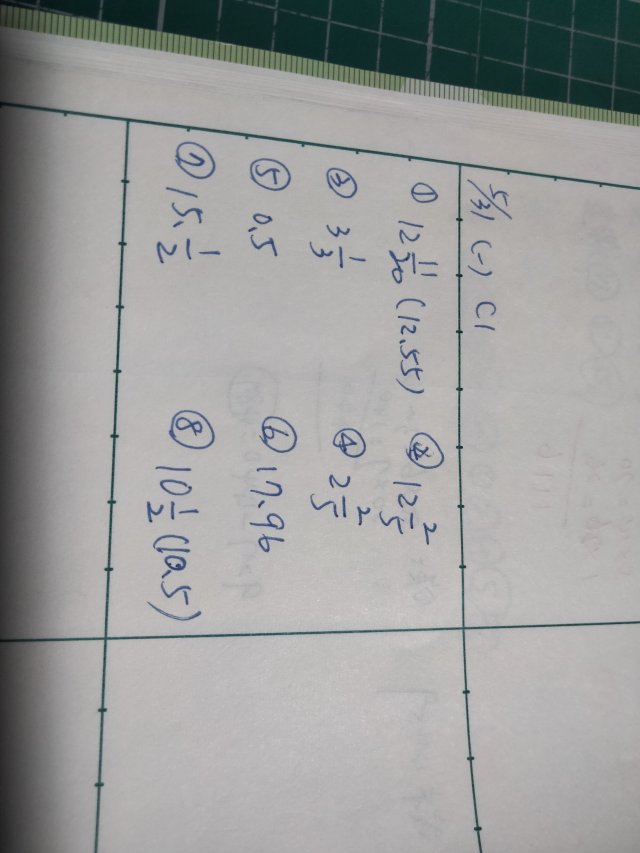 5/31 (-) C1
① 12 11/20 (12.55) ② 12 2/5
③ 3 1/3 ④ 2 2/5
⑤ 0.5 ⑥ 17.96
⑦ 15. 1/2 ⑧ 10 1/2 (10.5)